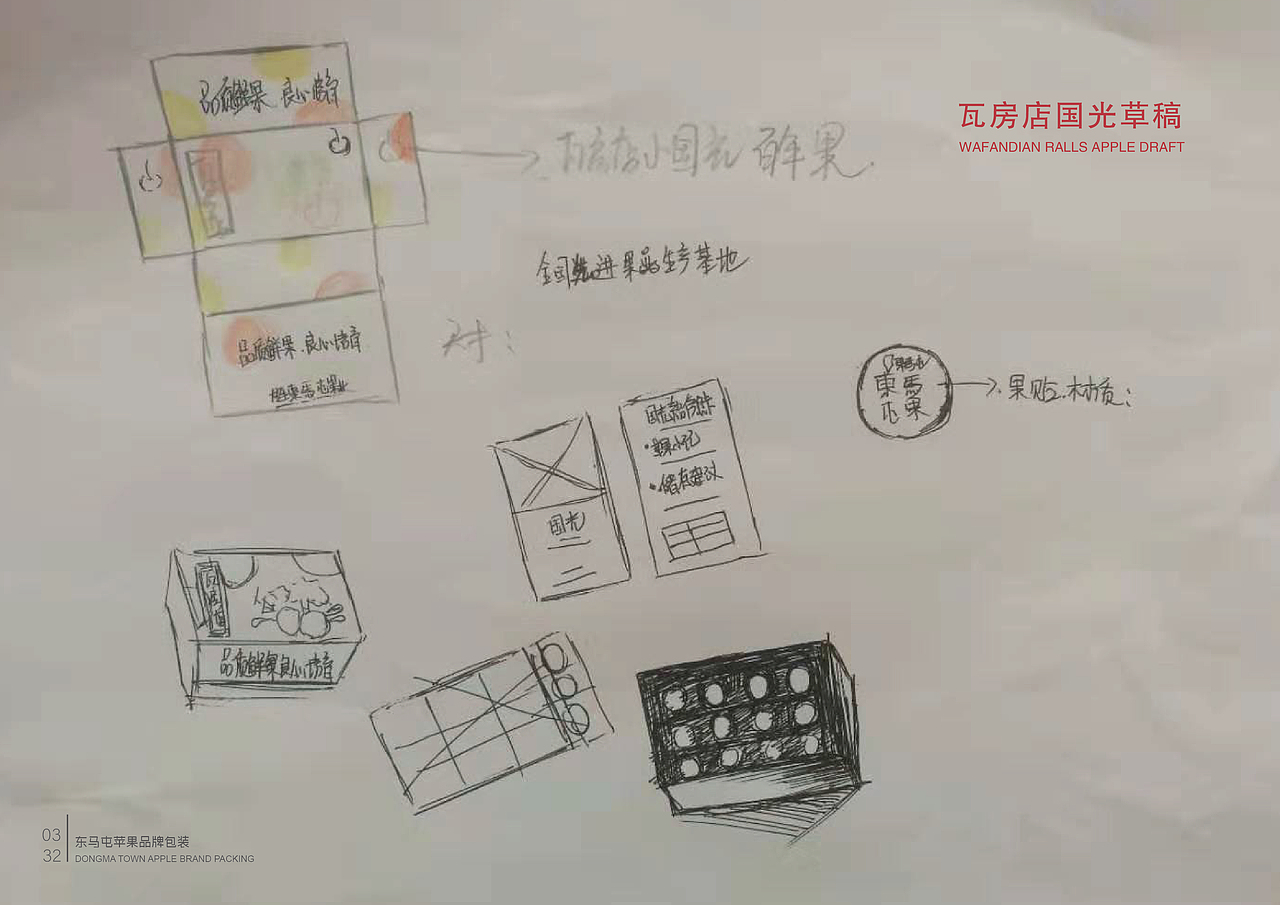 瓦房店国光草稿
WAFANDIAN RALLS APPLE DRAFT
品质鲜果 良心培育
瓦房店小国光 百年果.
全国先进果品生产基地
尺寸:
品质鲜果.良心培育
東馬
屯果
果贴.材质:
国光
储存建议
品质鲜果良心培育
03
32
东马屯苹果品牌包装
DONGMA TOWN APPLE BRAND PACKING